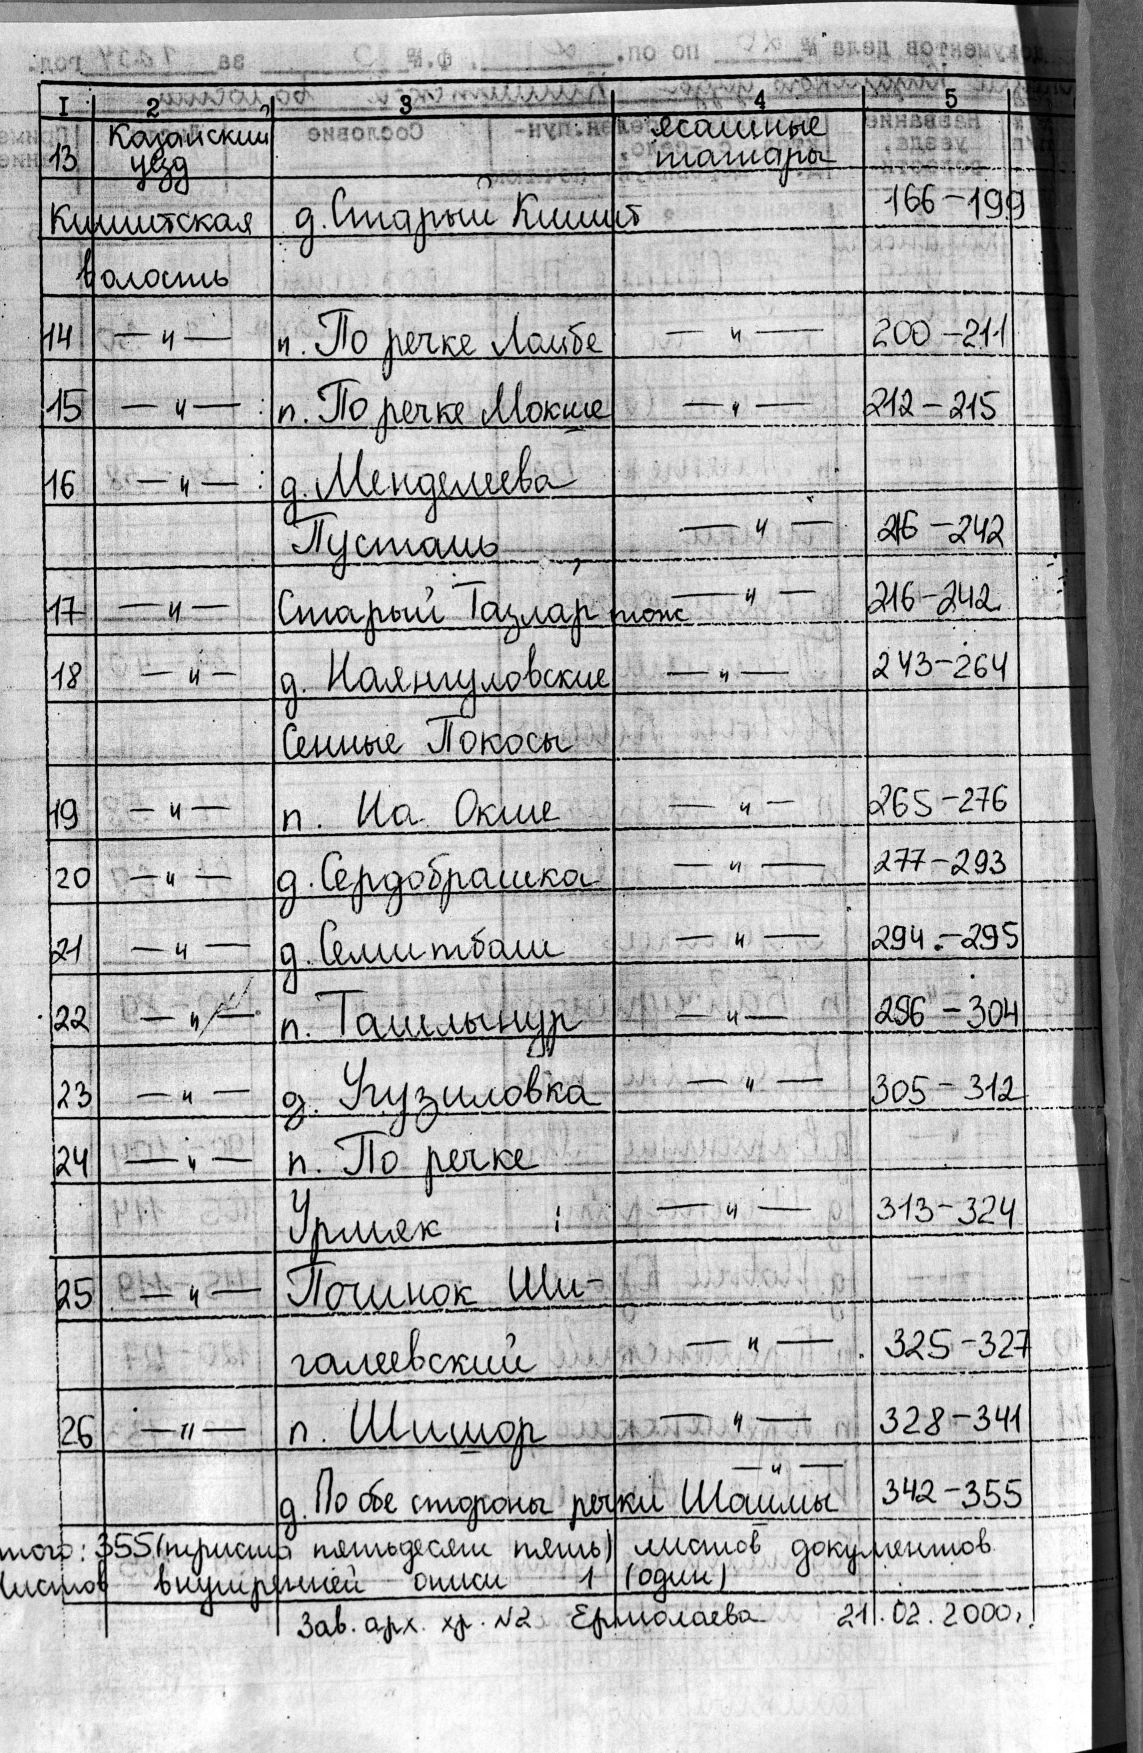 1 2 3 4 5
13 Казанский уезд ясашные татары
Кишитская д. Старый Кишит 166-199
волость
14 — " — п. По речке Лаибе — " — 200-211
15 — " — п. По речке Мокше — " — 212-215
16 — " — д. Менделеева
Пусташь — " — 216-242
17 — " — Старый Тазлар тож — " — 216-242
18 — " — д. Наянгуловские — " — 243-264
Сенные Покосы
19 — " — п. На Окше — " — 265-276
20 — " — д. Сердобрашка — " — 277-293
21 — " — д. Семитбаш — " — 294-295
22 — " — п. Ташлынур — " — 296-304
23 — " — д. Угузиловка — " — 305-312
24 — " — п. По речке
Урмяк — " — 313-324
25 — " — Починок Ши-
галеевский — " — 325-327
26 — " — п. Шишор — " — 328-341
— " —
д. По обе стороны речки Шаймы 342-355
того: 355 (триста пятьдесят пять) листов документов
Листов внутренней описи 1 (один)
Зав. арх. хр. №2 Ермолаева 21.02.2000.